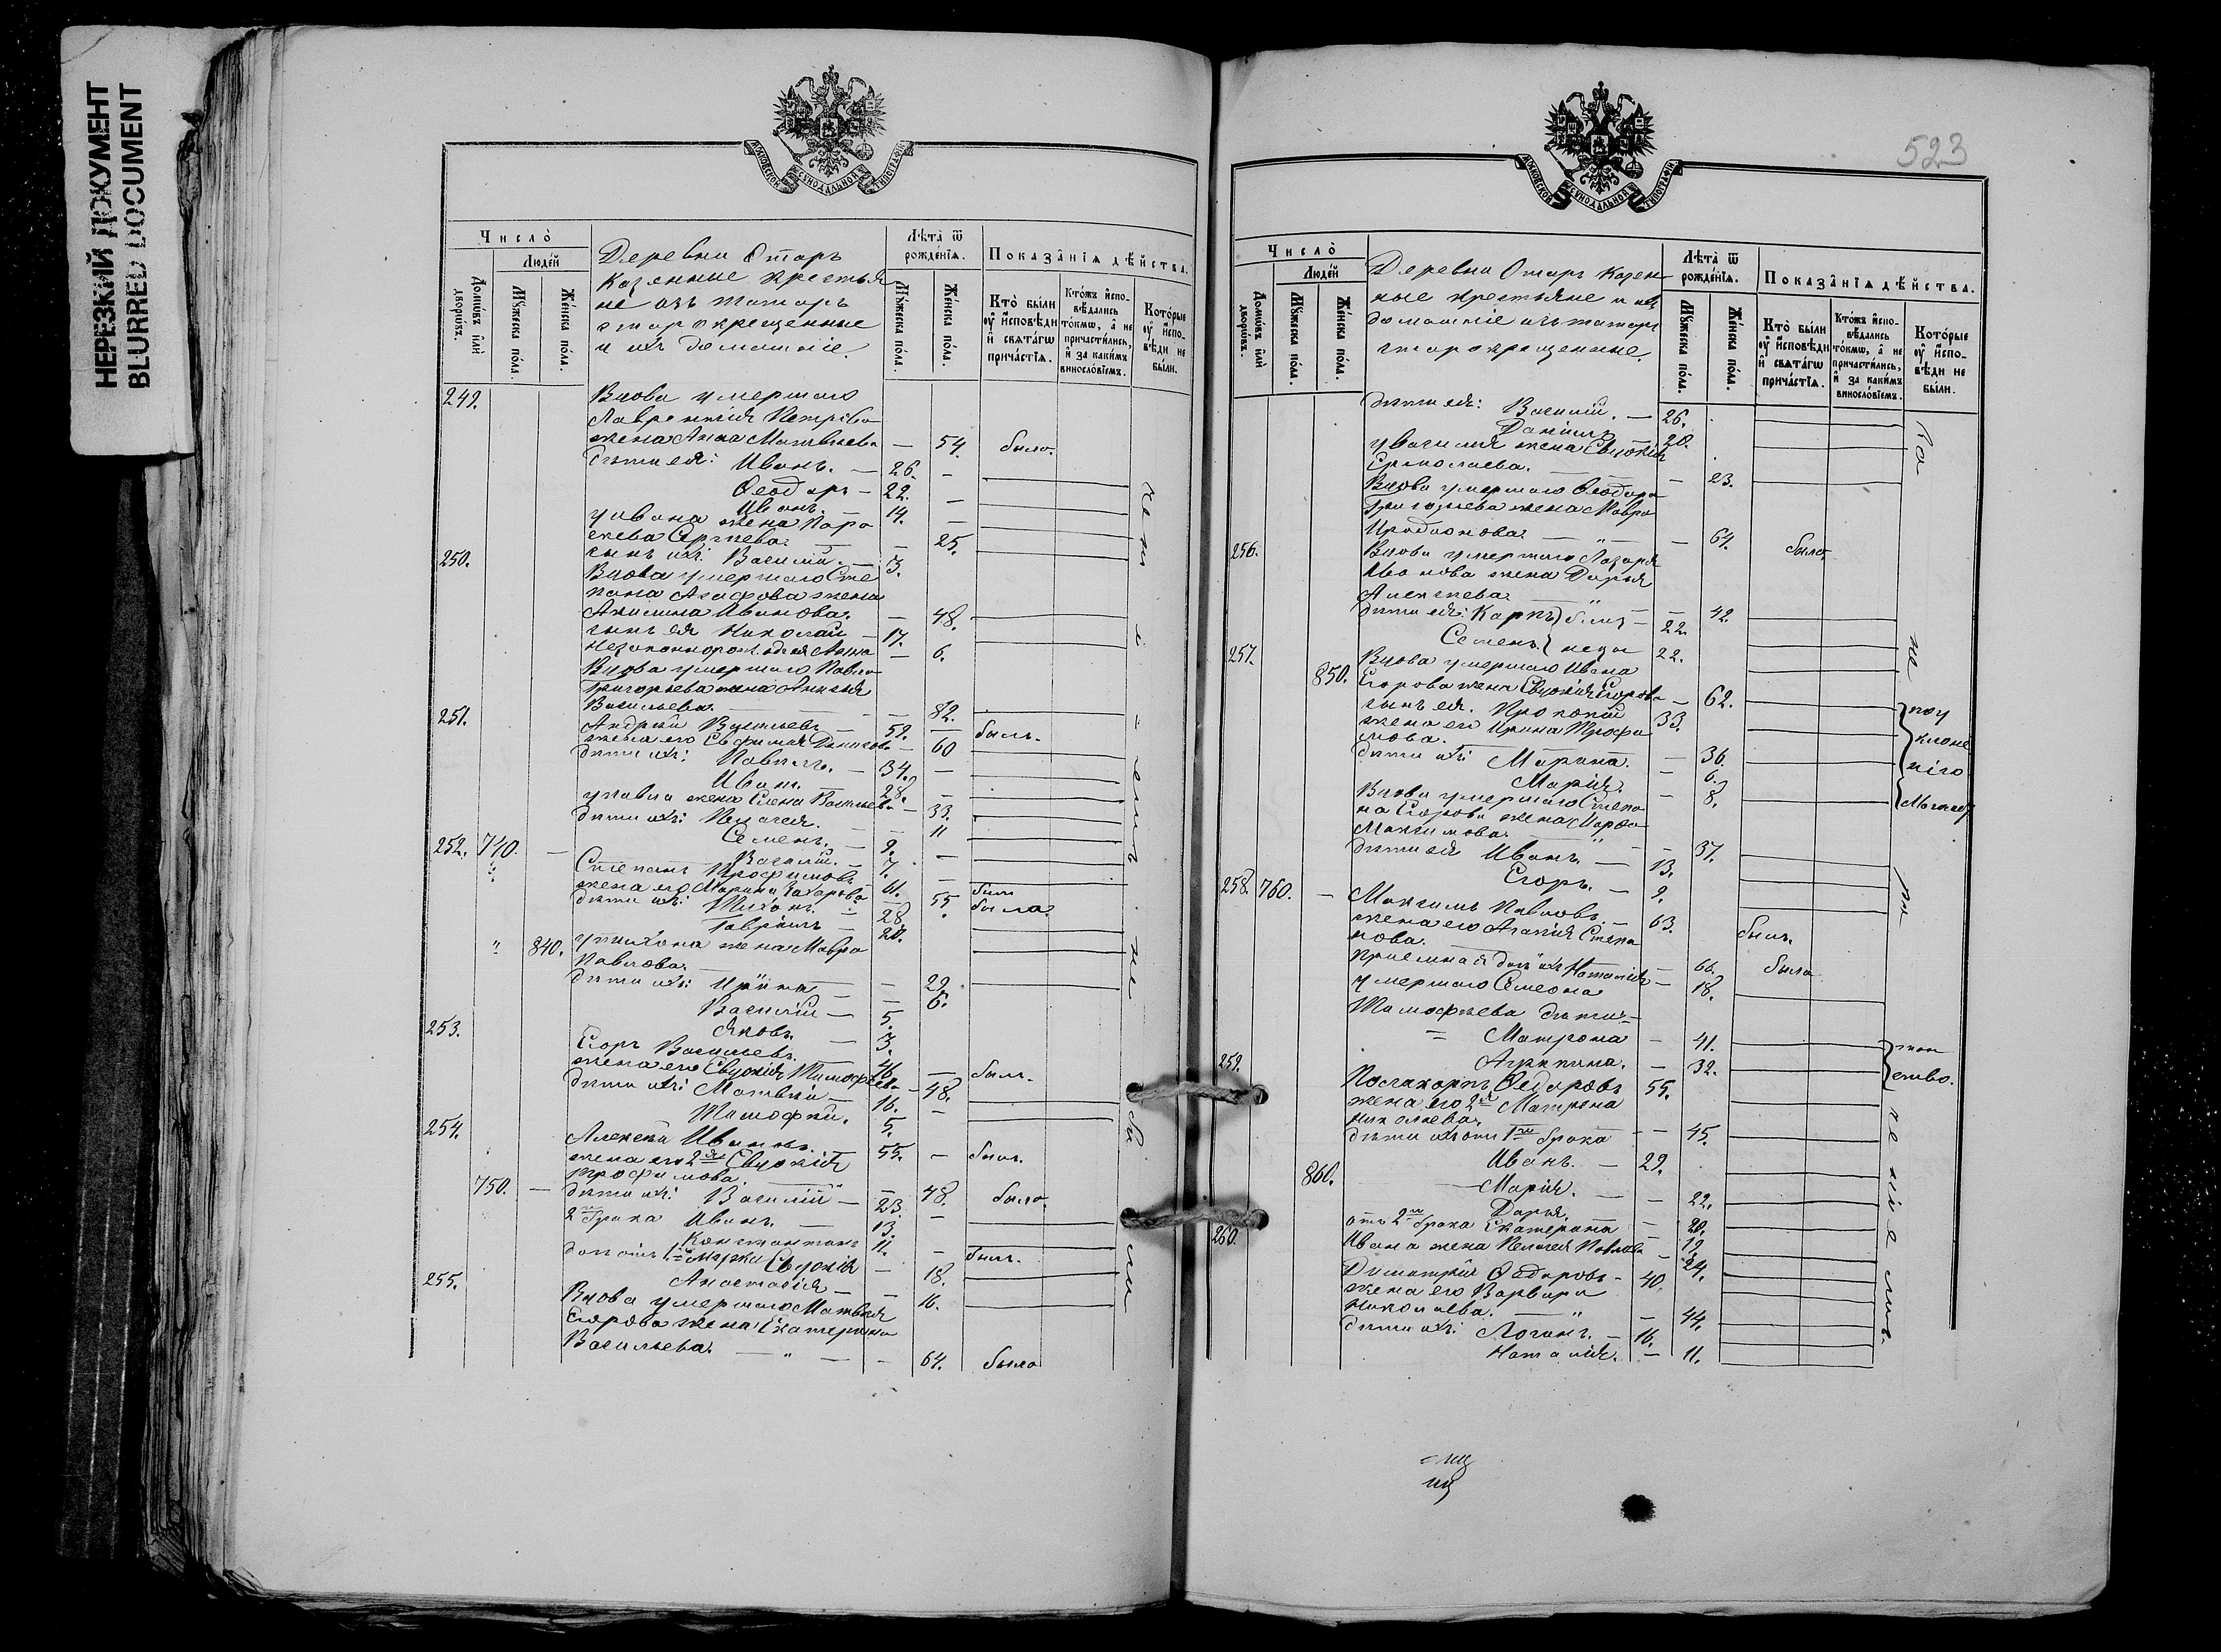 НЕРЕЗКИЙ ДОКУМЕНТ
BLURRED DOCUMENT
МОСКОВСКОЙ СѴНОДАЛЬНОЙ ТИПОГРАФІИ
Число̀
Люде́й
Домѡ́въ и҆лѝ дворѡ́въ.
Мꙋ́жеска по́ла.
Же́нска по́ла.
Деревни Отаръ
казенные крестья
не изъ татаръ
старокрещенные
и ихъ домашніе.
Лѣ́та ѿ рожде́нїѧ.
Мꙋ́жеска по́ла.
Же́нска по́ла.
Показа̑нїѧ дѣ́йства.
Кто̀ бы́ли ᲂу҆ и҆́сповѣди и҆ свѧта́гѡ прича́стїѧ.
Кто́жъ и҆сповѣ́дались то́кмѡ, а҆ не причасти́лись, и҆ за каки́мъ виносло́вїемъ.
Кото́рые ᲂу҆ и҆́сповѣди не бы́ли.
249. Вдова умершаго
Лаврентія Петрова
жена Анна Матвѣева — 54. была.
дѣти ея: Иванъ. — 26. —
Ѳеодоръ — 22. —
Иванъ. — 14. —
у Ивана жена Пара
скева Сергѣева. — 25.
сынъ ихъ Василій. — 3.
250. Вдова умершаго Сте
пана Агафова жена
Акилина Иванова. — 48.
сынъ ея Николай — 17.
незаконнорож. ея Анна — 6.
Вдова умершаго Павла
Григорьева жена
Васильева. — 82.
251. Андрей Васильевъ — 59. — былъ.
жена его Евфимія — 60
дѣти ихъ: Павелъ. — 34. —
Иванъ. — 28. —
у Павла жена Елена Васильева — 33.
дѣти ихъ: Пелагея. — 11
Семенъ. — 9.
Василій. — 7. —
252. 740. — Степанъ Трофимовъ 61. — былъ
жена его Марина Захарова — 55. была.
дѣти ихъ: Тихонъ. — 28.
Гавріилъ — 20.
" 840. у Тихона жена Мавра
Павлова. — 29.
дѣти ихъ: Ирина — 6.
Василій — 5.
Яковъ. — 3.
253. Егоръ Васильевъ. 46 — былъ.
жена его Евдокія Тимофѣева — 48.
дѣти ихъ: Матвѣй — 16. —
Тимофей. 5.
254. Алексѣй Ивановъ. 55. — былъ.
жена его 2я Евдокія
Трофимова. — 48. была.
750. — дѣти ихъ: Василій — 23. —
2 брака Иванъ. — 13.
Константинъ 11. — былъ.
Евдокія — 18.
Анастасія — 16.
255. Вдова умершаго Матвея
Егорова жена Екатерина
Васильева. — " — 64. была
523
МОСКОВСКОЙ СѴНОДАЛЬНОЙ ТИПОГРАФІИ
Число̀
Люде́й
Домѡ́въ и҆лѝ дворѡ́въ.
Мꙋ́жеска по́ла.
Же́нска по́ла.
Деревни Отаръ казен
ные крестьяне и ихъ
домашніе изъ татаръ
старокрещенные.
Лѣ́та ѿ рожде́нїѧ.
Мꙋ́жеска по́ла.
Же́нска по́ла.
Показа̑нїѧ дѣ́йства.
Кто̀ бы́ли ᲂу҆ и҆́сповѣди и҆ свѧта́гѡ прича́стїѧ.
Кто́жъ и҆сповѣ́дались то́кмѡ, а҆ не причасти́лись, и҆ за каки́мъ виносло́вїемъ.
Кото́рые ᲂу҆ и҆́сповѣди не бы́ли.
дѣти ея: Василій. — 26.
Даніилъ — 20.
у Василія жена Евдокія
Ермолаева. — 23.
Вдова умершаго Ѳеодора
Григорьева жена Мавра
Иродіонова. — " — 64. была,
256. Вдова умершаго Лазаря
Иванова жена Дарья
Алексѣева — 42.
дѣти ея: Карпъ — 22.
Семенъ. 22.
257. Вдова умершаго Ивана
850. Егорова жена Евдокія Егорова — 62.
сынъ ея. Прокопій 33.
жена его Ирина Трофи
мова. — 36.
дѣти ихъ: Марина. — 6.
Марія. — 8.
Вдова умершаго Степа
на Егорова жена Марфа
Максимова. — " — 37.
дѣти ея Иванъ. — 13.
Егоръ. — 9.
258. 760. — Максимъ Павловъ. — 63. былъ.
жена его Агапія Степа
нова. — 66. была
пріемная дочь ихъ Наталія — 18.
умершаго Симеона
Тимофѣева дѣти:
Матрона — 41.
Агрипина. — 32.
259. Поликарпъ Ѳедоровъ 55.
жена его 2я Матрена
Николаева. — 45.
дѣти ихъ отъ 1го брака
Иванъ. — 29.
860. — Марія. — 22.
Дарья. — 20.
отъ 2го брака Екатерина — 19
Ивана жена Пелагея Павлова — 24.
260. Димитрій Ѳедоровъ — 40.
жена его Варвара
Николаева. — " — 44.
дѣти ихъ: Логинъ. — 16.
Наталія. — 11.